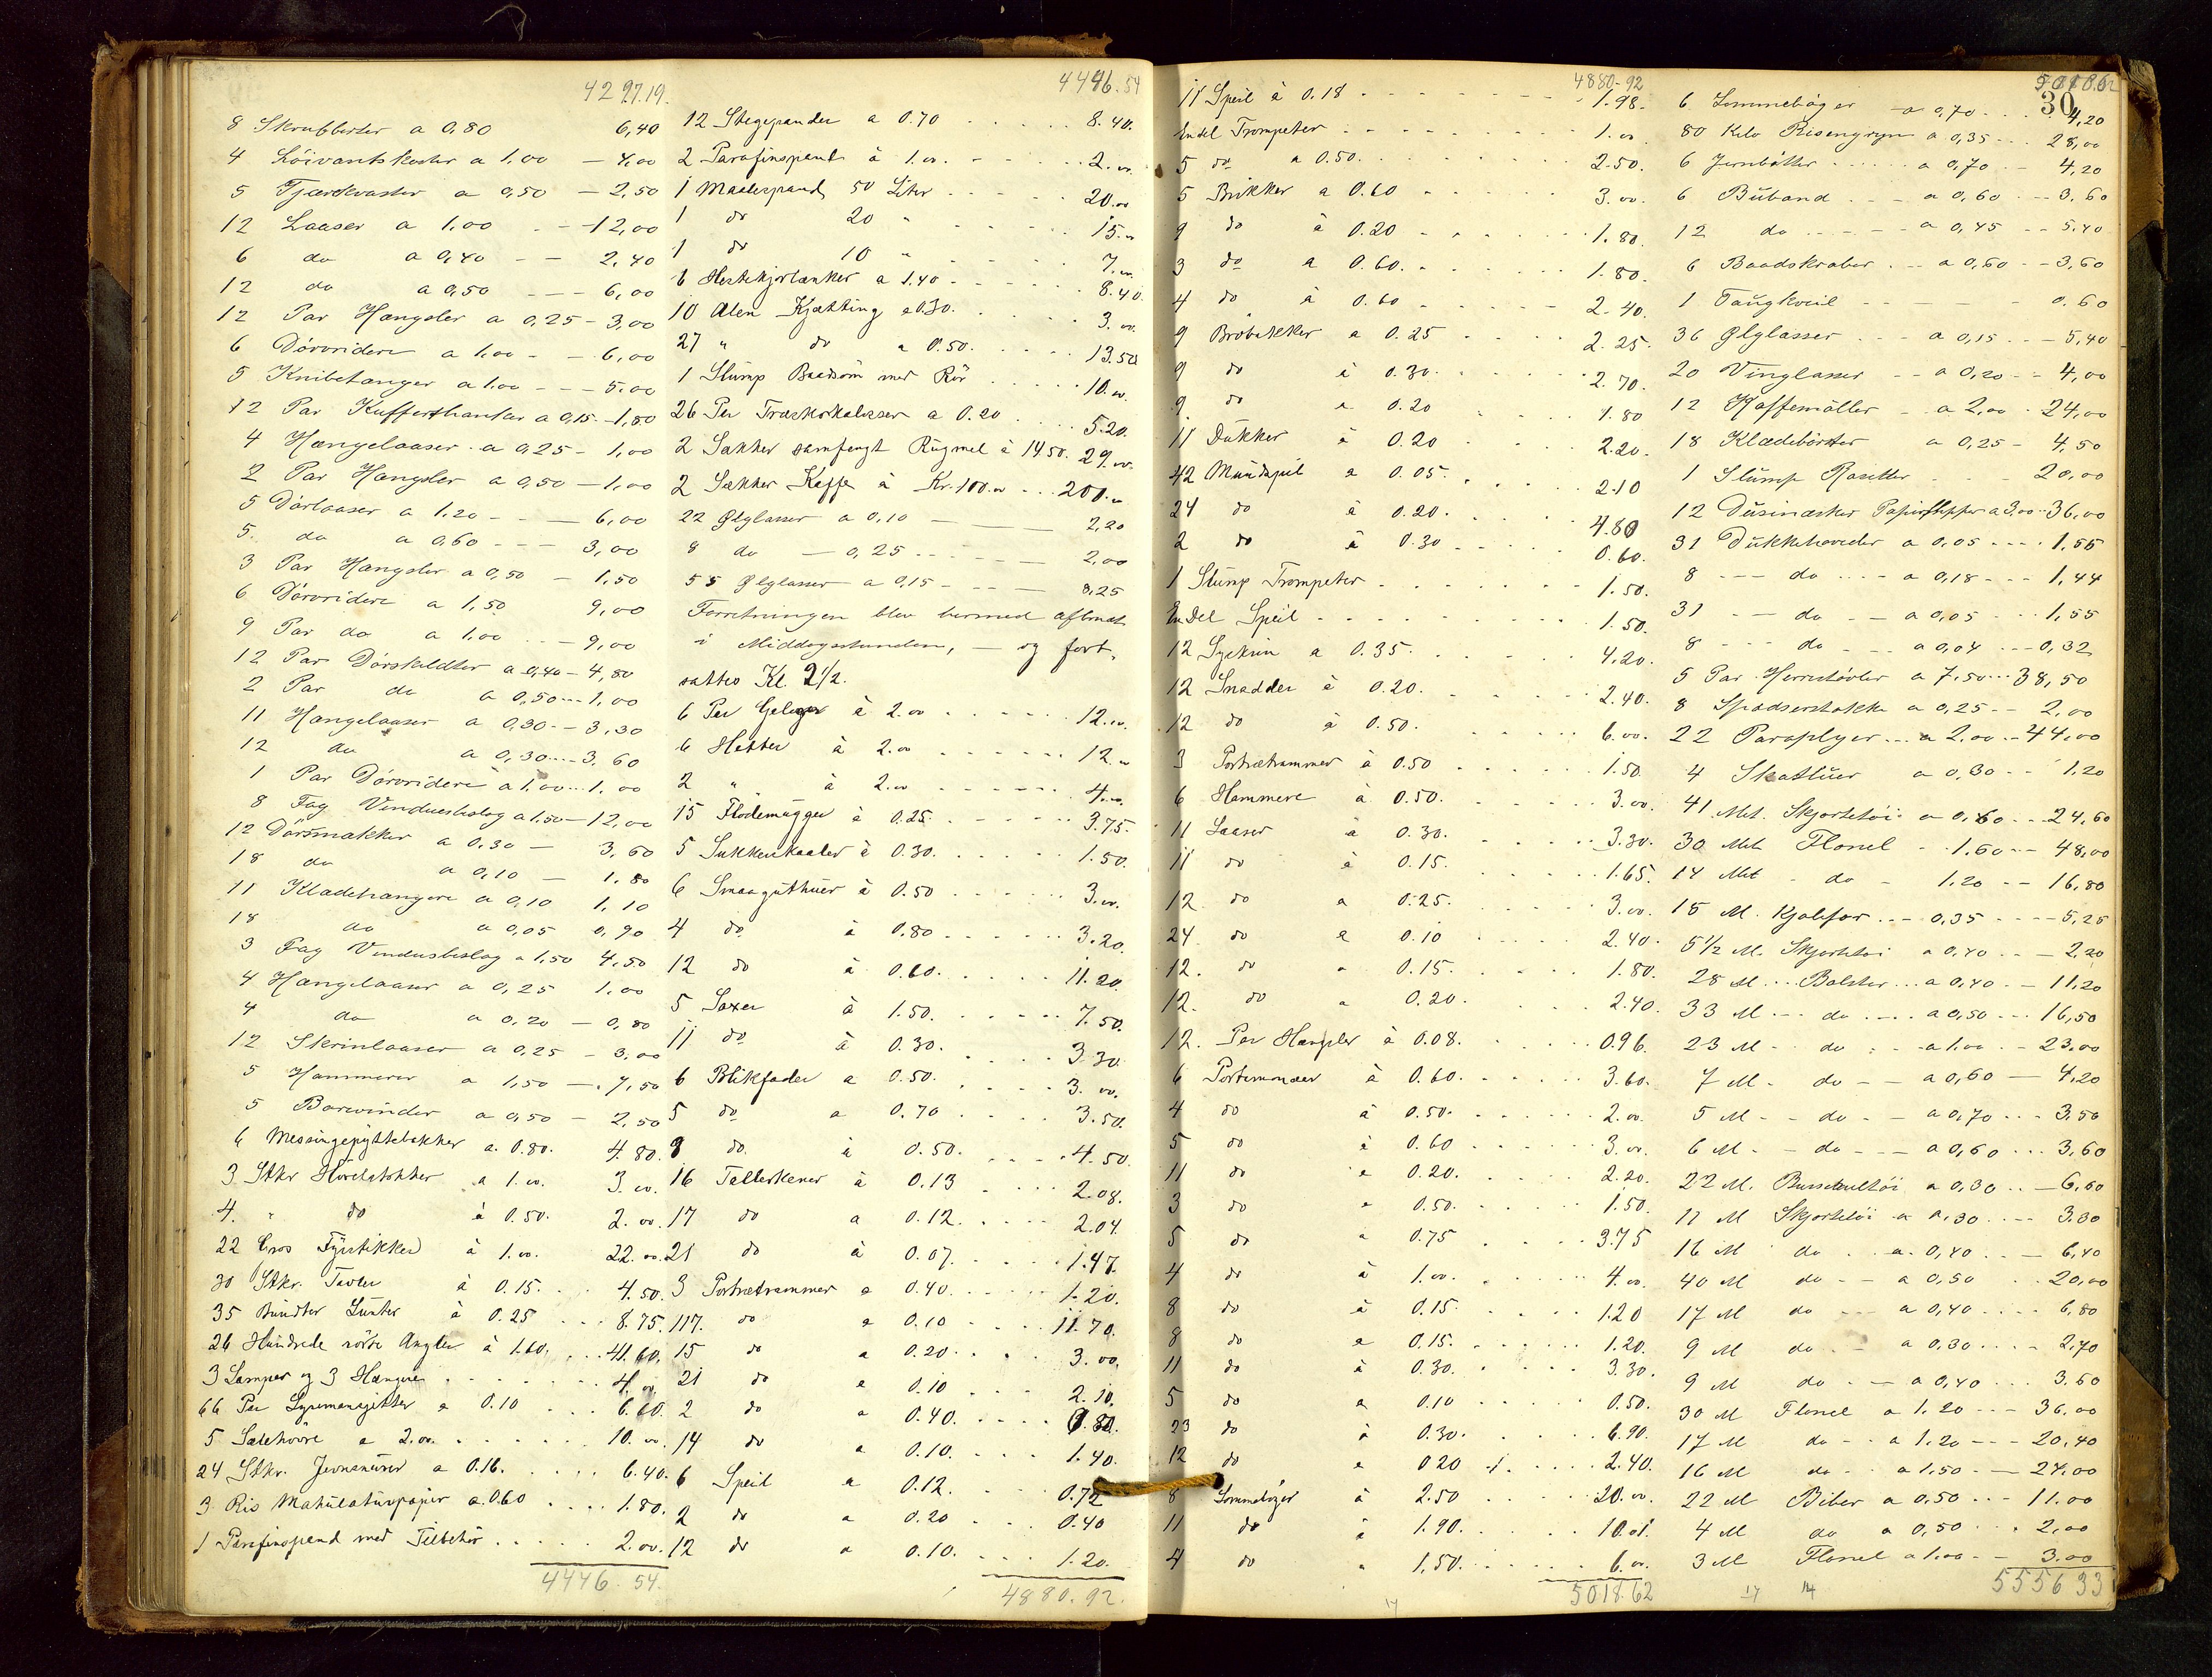 4297.19.
8 Skrubbørster a 0,80 6,40
4 Løivantskoster a 1,00 — 4,00
5 Tjærekvaster a 0,50 — 2,50
12 Laaser a 1,00 - - 12,00
6 do a 0,40 - - 2,40
12 do a 0,50 - - - 6,00
12 Par Hængsler a 0,25 - 3,00
6 Dørvridere a 1,00 - - 6,00
5 Knibetanger a 1.00 - - - 5.00
12 Par Kufferthanker a 0,15 - 1,80
4 Hængelaaser a 0,25 - 1,00
2 Par Hængsler a 0,50 - 1,00
5 Dørlaaser a 1.20 - - - 6,00
5 do a 0,60 - - - 3,00
3 Par Hængsler a 0,50 - 1,50
6 Dørvridere a 1,50 9,00
9 Par do a 1,00 - - 9,00
12 Par Dørskildter a 0,40 - 4,80
2 Par do a 0,50 - - - 1,00
11 Hængelaaser a 0,30 - - 3,30
12 do a 0,30 - - - 3,60
1 Par Dørvridere a 1,00 - - 1,00
8 Fag Vinduesbeslag a 1,50 - 12,00
12 Dørsmækker a 0,30 — 3,60
18 do a 0,10 — 1,80
11 Klædehængere a 0,10 1,10
18 do a 0,05 0,90
3 Fag Vinduesbeslag a 1,50 4,50
4 Hængelaaser a 0,25 1,00
4 do a 0,20 — 0,80
12 Skrinlaaser a 0,25 - 3,00
5 Hammerer a 1,50 — 7,50
5 Borvinder a 0,50 - 2,50
6 Messingspyttebakker a. 0.80. 4.80.
3 Stkr a 1.00. 3.00.
4. " do à 0.50. 2.00.
22 Gros Fyrstikker à 1.00. 22.00.
30 Stkr. Tavler à 0.15. 4.50.
35 Bundter Lunter à 0.25 8.75.
26 Hundrede Angler à 1.60. 41.60.
3 Lamper og 3 Hængere 4.00
66 Par a 0.10 6.60.
5 a 2.00. 10.00.
24 Stkr. a 0.16. 6.40.
3. Ris Makulaturpapir a. 0.60 1.80.
1 Parafinspand med Tilbehør 2.00.
4446.54.
4446.54
12 Stegepander a 0.70 8.40.
2 Parafinspand à 1.00. 2.00.
1 Maalespand 50 Liter 20.00
1 do 20 " 15.00
1 do 10 " 7.00.
6 a 1.40 8.40.
10 Alen Kjætting a 0.30. 3.00.
27 " do a 0.50. 13.50
1 Slump Baadsøm med Rør 10.00.
26 Par a 0.20 5.20.
2 Sækker samfengt Rugmel à 14.50. 29.00.
2 Sækker Kaffe à Kr. 100.00 200.00
22 Ølglasser a 0,10 2,20
8 do — 0,25 2,00
55 Ølglasser a 0,15 8,25
Forretningen blev hermed afbrudt
i Middagsstunden, — og fort-
sattes Kl. 2½.
6 Par à 2.00 12.00.
6 Hetter à 2.00 12.00
2 " à 2.00 4.00.
15 Flødemugger à 0.25 3.75.
5 Sukkerskaaler à 0.30. 1.50.
6 Smaaguthuer à 0.50 3.00.
4 do à 0.80 3.20.
12 do à 0.60. 11.20.
5 Saxer à 1.50. 7.50.
11 do à 0.30. 3.30
6 Blikfade a 0.50. 3.00.
5 do a 0.70 3.50.
9 do. à 0.50. 4.50.
16 Tallerkener à 0.13 2.08.
17 do a 0.12. 2.04.
21 do à 0.07. 1.47.
3 Portrætrammer a 0.40. 1.20.
117. do a 0.10 11.70.
15 do a 0.20 3.00.
21 do a 0.10 2.10.
2 do a 0.40. 0.80.
14 do a 0.10. 1.40.
6 Speil a 0.12. 0.72
2 do a 0.20 0.40
12 do a 0.10. 1.20.
4880.92.
4880.92
11 Speil à 0.18 1.98.
Endel Trompeter 1.00
5 do a 0.50. 2.50.
5 Brikker a 0.60 3.00.
9 do à 0.20 1.80.
3 do a 0.60. 1.80.
4 do à 0.60 2.40.
9 Brøbakker a 0.25 2.25.
9 do à 0.30. 2.70.
9. do a 0.20 1.80
11 Dukker à 0.20 2.20.
42 Mundspil a 0.05. 2.10
24 do à 0.20. 4.80
2 do à 0.30 0.60.
1 Slump Trompeter 1.50.
Endel Speil 1.50.
12 Syskrin a 0.35. 4.20.
12 Snadder à 0.20. 2.40.
12 do à 0.50. 6.00.
3 Portrætrammer à 0.50 1.50.
6 Hammere à 0.50. 3.00.
11 Laaser à 0.30. 3.30.
11 do à 0.15. 1.65.
12. do a 0.25. 3.00.
24 do a 0.10 2.40.
12. do a 0.15. 1.80.
12. do a 0.20. 2.40.
12. Par Hængsler à 0.08. 0.96.
6 Portemonæer à 0.60. 3.60.
4 do à 0.50. 2.00.
5 do à 0.60 3.00.
11 do a 0.20. 2.20.
3 do a 0.50. 1.50.
5 do a 0.75 3.75
4 do à 1.00. 4.00.
8 do à 0.15. 1.20
8 do a 0.15. 1.20.
11 do à 0.30. 3.30
5 do a 0.10 0.50.
23 do à 0.30. 6.90.
12 do a 0.20 2.40.
8 Lommebøger à 2.50 20.00.
11 do à 1.90. 10.01.
4 do " 1.50. 6.00.
5018.62
5018.62
30
6 Lommebøger a 0,70 4,20
80 Kilo Risengryn a 0,35 28,00
6 Jernbøtter a 0,70 4,20
6 Buband a 0,60 3,60
12 do a 0,45 5,40
6 Baadskraber a 0,60 3,60
1 Taugkveil 0.60
36 Ølglasser a 0,15 5,40
20 Vinglasser a 0,20 4,00
12 Kaffemøller a 2,00 24,00
18 Klædebørster a 0,25 4,50
1 Slump Rosetter 20,00
12 Dusinæsker Papirflipper a 3,00 36,00
31 Dukkehoveder a 0,05 1,55
8 do a 0,18 1,44
31 do a 0,05 1,55
8 do a 0,04 0,32
5 Par Herrestøvler a 7.50 38,50
8 Spadserstokke a 0,25 2,00
22 Paraplyer a 2.00 44,00
4 Skatluer a 0,30 1,20
41 Met. Skjortetøi a 0,60 24,60
30 Met Flonel 1.60 48,00
14 Met do 1.20 16,80
15 M. Kjolefor 0,35 5,25
5½ M. Skjortetøi a 0,40 2,20
28 M Bolster a 0,40 11,20
33 M do a 0,50 16,50
23 M do a 1.00 23.00
7 M do a 0,60 4,20
5 M do a 0,70 3.50
6 M do a 0,60 3,60
22 M. a 0,30 6,60
11 M Skjortetøi a 0,30 3.30
16 M do a 0,40 6,40
40 M do a 0,50 20,00
17 M do a 0,40 6,80
9 M do a 0,30 2,70
9 M do a 0,40 3.60
30 M Flonel a 1.20 36,00
17 M do a 1,20 20,40
16 M do a 1,50 24,00
22 M Biber a 0,50 11.00
4 M do a 0,50 2,00
3 M Flonel a 1.00 3.00
5556 33